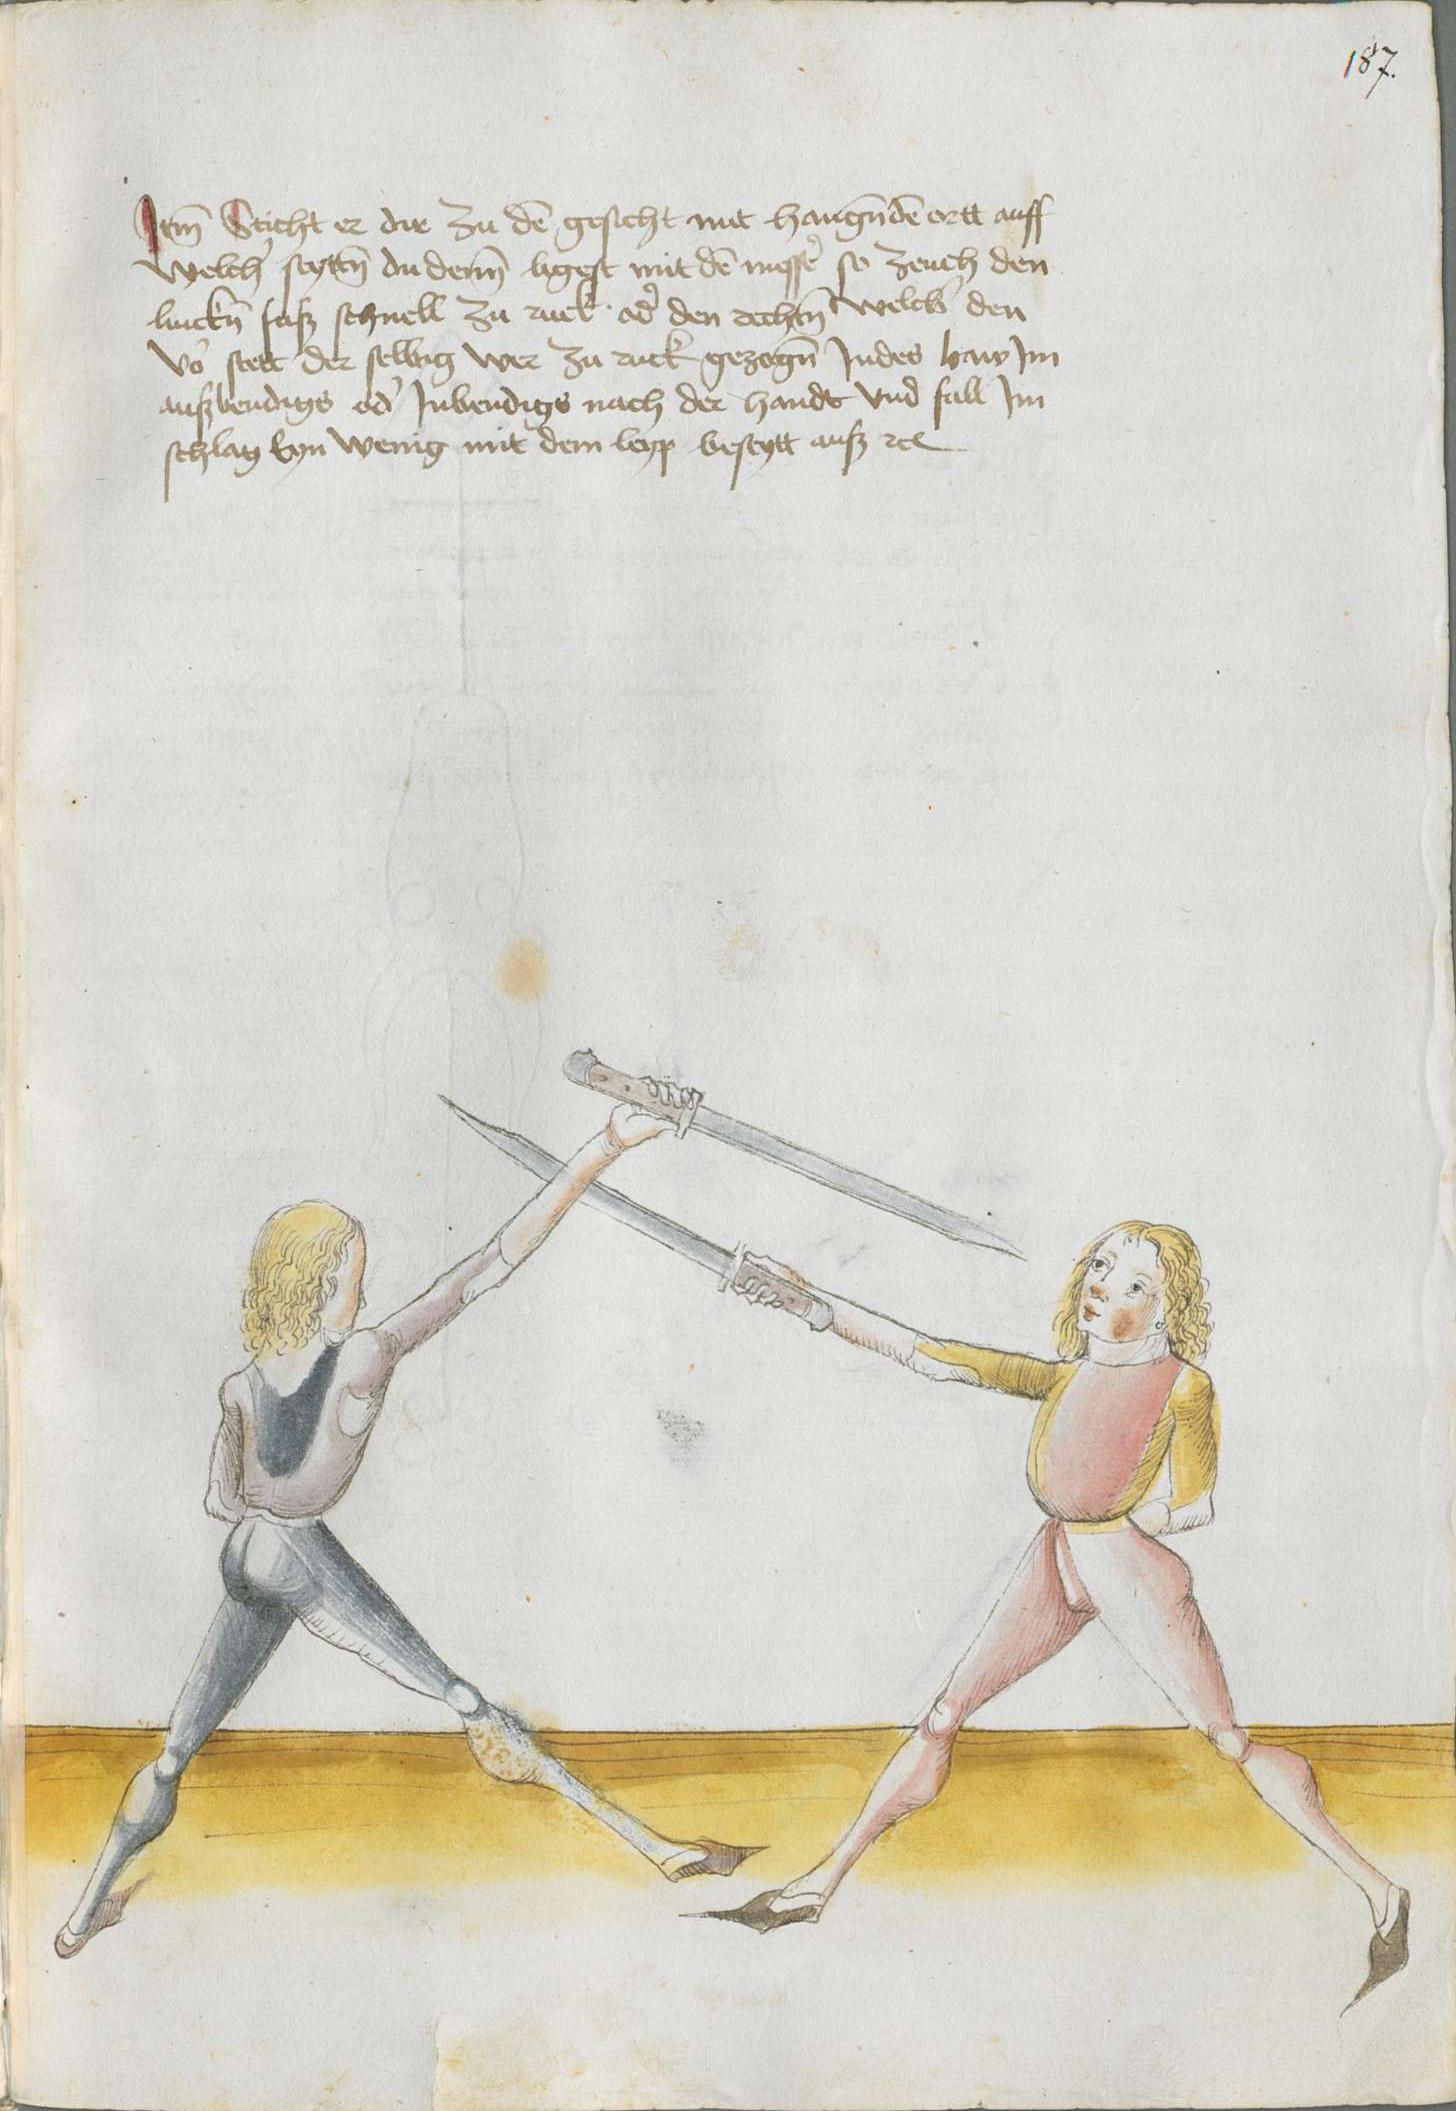 187.
Itm̄ Sticht er dir zu dē gesicht mit hangn̄dē ortt auff
welch᾿ seyttn̄ du denn̄ ligest mit dē messe᾿ so zeuch den
linckn̄ fusz schnell zu ruck od᾿ den rechtn̄ welch᾿ den
vō stett der selbig wer zu ruck gezogn̄ Indes haw Im
auszbendigs od᾿ Inbendigs nach der handt vnd fall Im
schlag eyn wenig mit dem leyp beseytt ausz